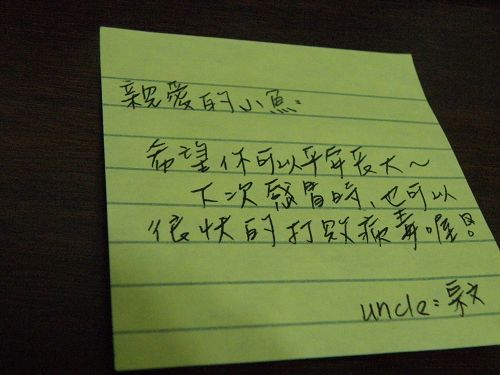 親愛的小魚:
希望你可以平安長大~
下次感冒時,也可以
很快的打敗病毒喔!
uncle: